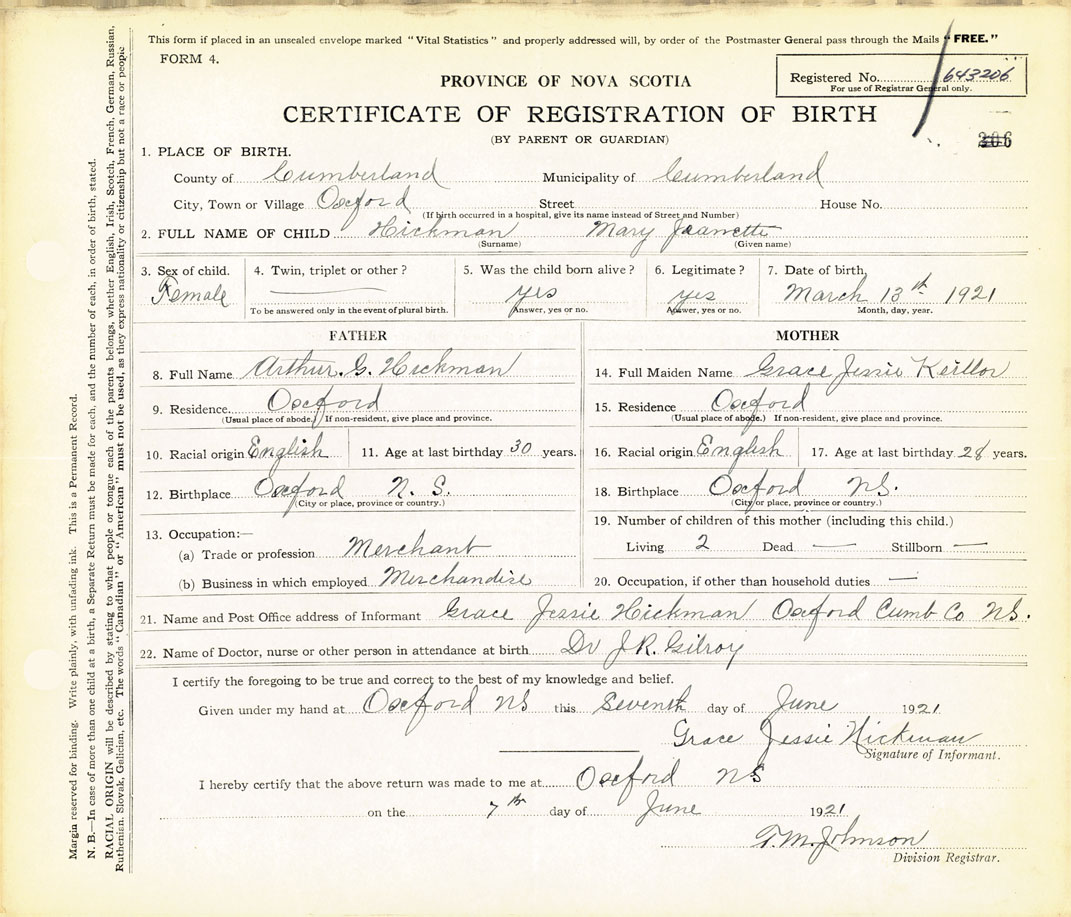 This form if placed in an unsealed envelope marked "Vital Statistics" and properly addressed will, by order of the Postmaster General pass through the Mails "FREE."
FORM 4.
Registered No. 643206
For use of Registrar General only.
PROVINCE OF NOVA SCOTIA
CERTIFICATE OF REGISTRATION OF BIRTH
206
(BY PARENT OR GUARDIAN)
1. PLACE OF BIRTH.
County of Cumberland Municipality of Cumberland
City, Town or Village Oxford Street House No.
(If birth occurred in a hospital, give its name instead of Street and Number)
2. FULL NAME OF CHILD Hickman Mary Jeanette
(Surname) (Given name)
3. Sex of child. 4. Twin, triplet or other? 5. Was the child born alive? 6. Legitimate? 7. Date of birth,
Female — yes yes March 13th 1921
To be answered only in the event of plural birth. Answer, yes or no. Answer, yes or no. Month, day, year.
FATHER MOTHER
8. Full Name Arthur. G. Hickman 14. Full Maiden Name Grace Jessie Keillor
9. Residence Oxford 15. Residence Oxford
(Usual place of abode.) If non-resident, give place and province. (Usual place of abode.) If non-resident, give place and province.
10. Racial origin English 11. Age at last birthday 30 years. 16. Racial origin English 17. Age at last birthday 28 years.
12. Birthplace Oxford N. S. 18. Birthplace Oxford NS.
(City or place, province or country.) (City or place, province or country.)
13. Occupation:— 19. Number of children of this mother (including this child.)
(a) Trade or profession Merchant Living 2 Dead — Stillborn —
(b) Business in which employed Merchandise 20. Occupation, if other than household duties —
21. Name and Post Office address of Informant Grace Jessie Hickman Oxford Cumb Co NS.
22. Name of Doctor, nurse or other person in attendance at birth Dr J.R. Gilroy
I certify the foregoing to be true and correct to the best of my knowledge and belief.
Given under my hand at Oxford NS this Seventh day of June 1921.
Grace Jessie Hickman
Signature of Informant.
I hereby certify that the above return was made to me at Oxford NS
on the 7th day of June 1921
T. M. Johnson
Division Registrar.
Margin reserved for binding. Write plainly, with unfading ink. This is a Permanent Record.
N. B.—In case of more than one child at a birth, a Separate Return must be made for each, and the number of each, in order of birth, stated.
RACIAL ORIGIN will be described by stating to what people or tongue each of the parents belongs, whether English, Irish, Scotch, French, German, Russian,
Ruthenian, Slovak, Galician, etc. The words "Canadian" or "American" must not be used, as they express nationality or citizenship but not a race or people